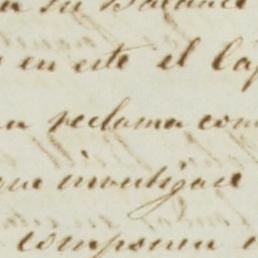 su Balance
en este el Ca
reclama com
que investigase
componia